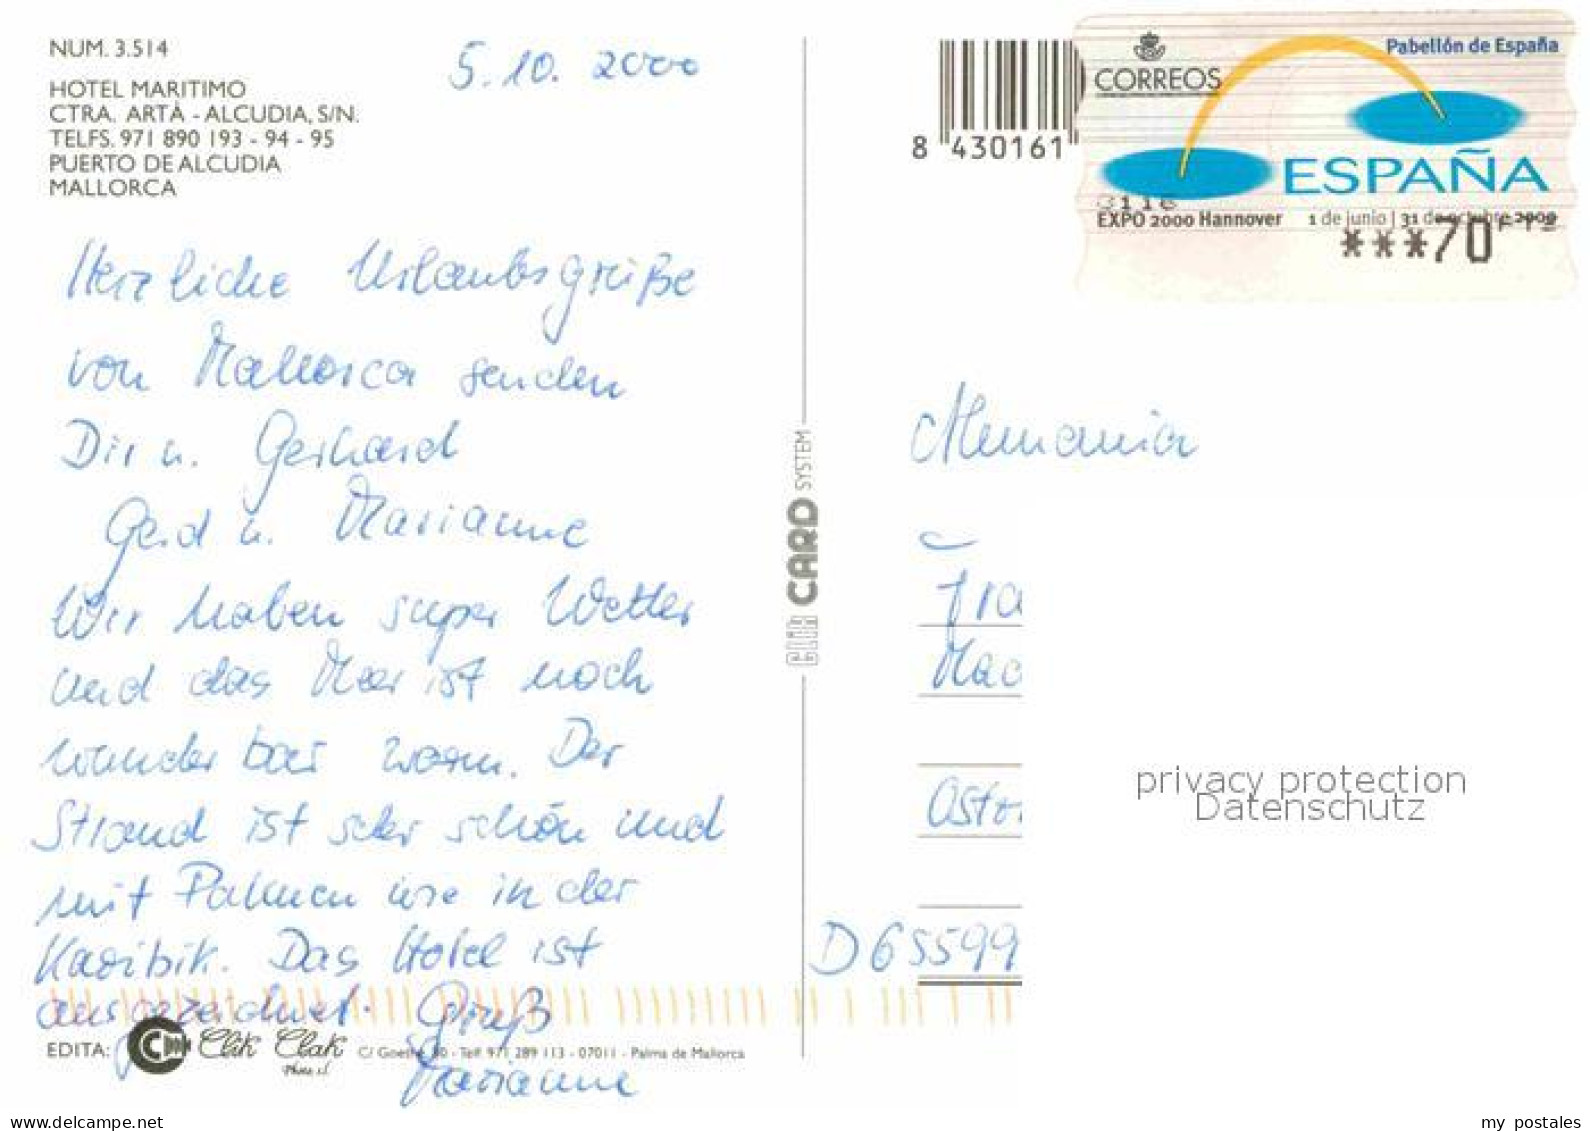 NUM. 3.514
HOTEL MARITIMO
CTRA. ARTÀ - ALCUDIA, S/N.
TELFS. 971 890 193 - 94 - 95
PUERTO DE ALCUDIA
MALLORCA
5.10. 2000
Herzliche Urlaubsgrüße
von Mallorca senden
Dir u. Gerhard
Gerd u. Marianne
Wir haben super Wetter
und das Meer ist noch
wunderbar warm. Der
Strand ist sehr schön und
mit Palmen wie in der
Karibik. Das Hotel ist
ausgezeichnet. Gruß
Marianne
EDITA: Clik Clak C/ Goethe, - Telf. 971 289 113 - 07011 - Palma de Mallorca
Photo s.l.
Clik CARD SYSTEM
8 430161
CORREOS
Pabellón de España
ESPAÑA
EXPO 2000 Hannover 1 de junio | 31 de octubre 2000
***70 PTS
Alemania
Fra
Mac
Osto
D 65599
privacy protection
Datenschutz
www.delcampe.net
my_postales